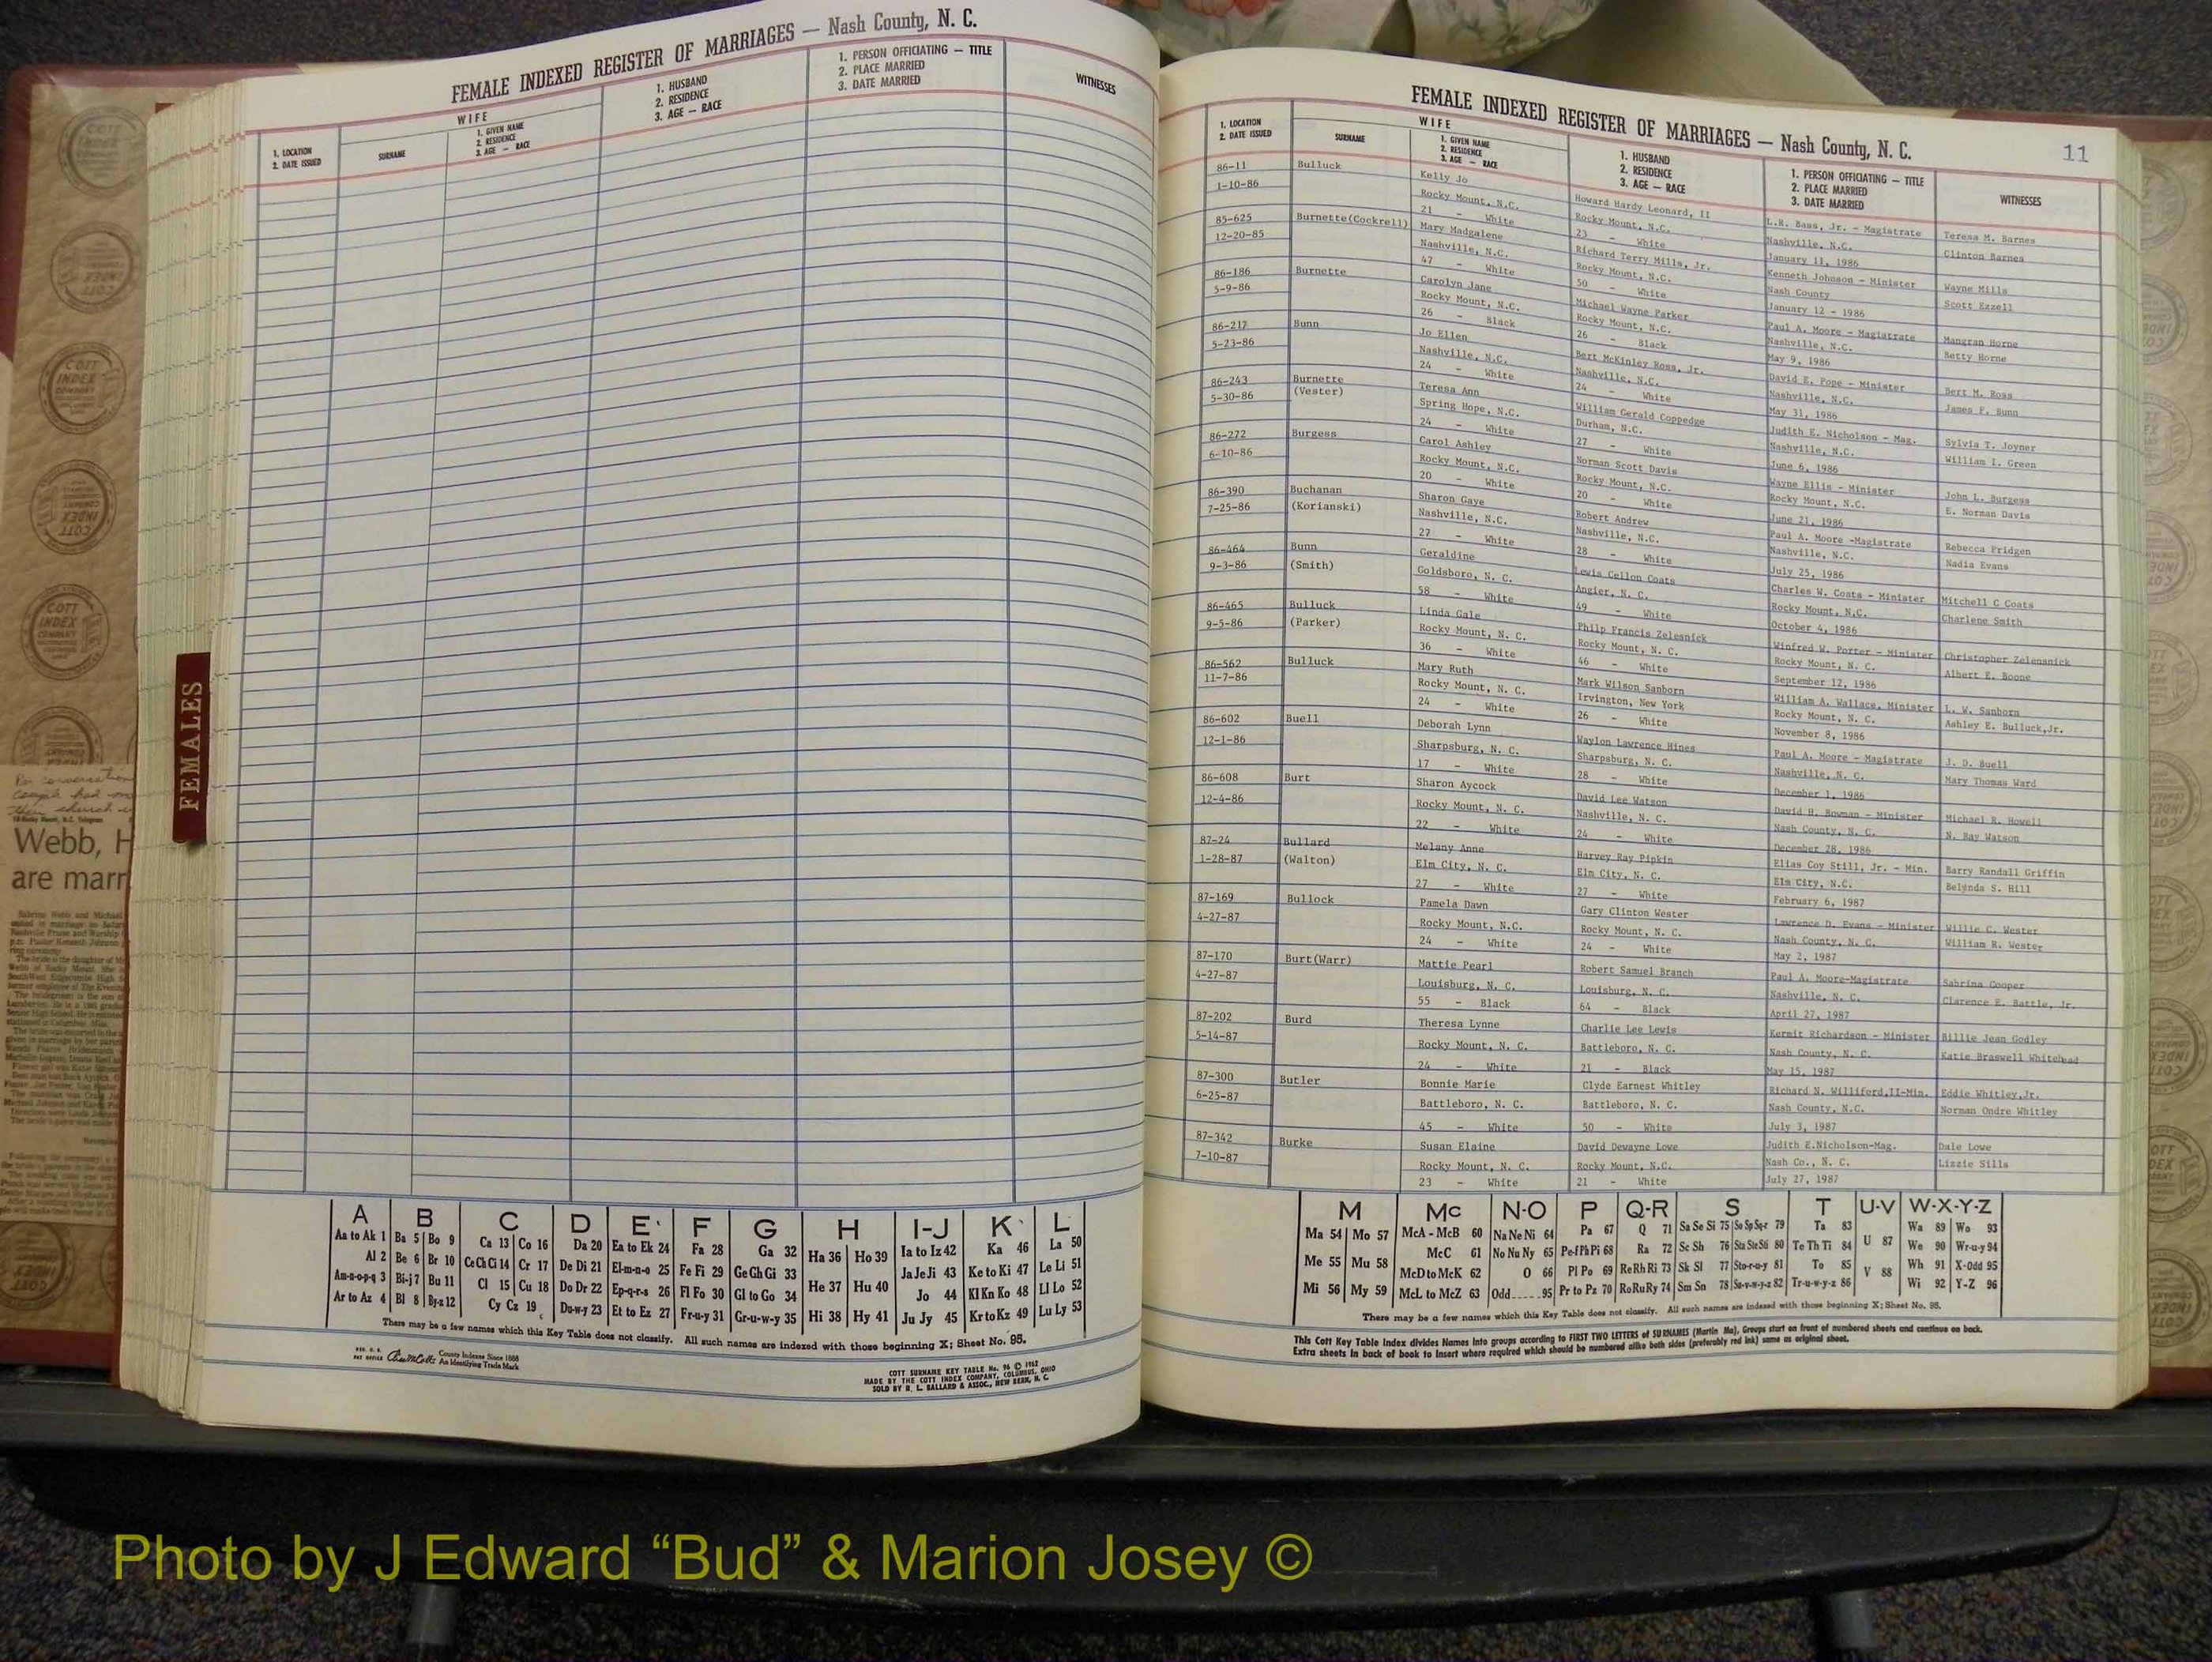 FEMALE INDEXED REGISTER OF MARRIAGES — Nash County, N. C.
1. LOCATION
2. DATE ISSUED
WIFE
SURNAME
1. GIVEN NAME
2. RESIDENCE
3. AGE — RACE
1. HUSBAND
2. RESIDENCE
3. AGE — RACE
1. PERSON OFFICIATING — TITLE
2. PLACE MARRIED
3. DATE MARRIED
WITNESSES
FEMALES
Webb, H
are marr
A B C D E F G H I-J K L
Aa to Ak 1 Ba 5 Bo 9 Ca 13 Co 16 Da 20 Ea to Ek 24 Fa 28 Ga 32 Ha 36 Ho 39 Ia to Iz 42 Ka 46 La 50
Al 2 Be 6 Br 10 Ce Ch Ci 14 Cr 17 De Di 21 El-m-n-o 25 Fe Fi 29 Ge Gh Gi 33 He 37 Hu 40 Ja Je Ji 43 Ke to Ki 47 Le Li 51
Am-n-o-p-q 3 Bi-j 7 Bu 11 Cl 15 Cu 18 Do Dr 22 Ep-q-r-s 26 Fl Fo 30 Gl to Go 34 Hi 38 Hy 41 Jo 44 Kl Kn Ko 48 Ll Lo 52
Ar to Az 4 Bl 8 By-z 12 Cy Cz 19 Du-w-y 23 Et to Ez 27 Fr-u-y 31 Gr-u-w-y 35 Ju Jy 45 Kr to Kz 49 Lu Ly 53
There may be a few names which this Key Table does not classify. All such names are indexed with those beginning X; Sheet No. 95.
County Indexes Since 1888
An Identifying Trade Mark
COTT SURNAME KEY TABLE No. 96 © 1962
MADE BY THE COTT INDEX COMPANY, COLUMBUS, OHIO
SOLD BY R. L. BALLARD & ASSOC., NEW BERN, N. C.
FEMALE INDEXED REGISTER OF MARRIAGES — Nash County, N. C.
11
1. LOCATION
2. DATE ISSUED
WIFE
SURNAME
1. GIVEN NAME
2. RESIDENCE
3. AGE — RACE
1. HUSBAND
2. RESIDENCE
3. AGE — RACE
1. PERSON OFFICIATING — TITLE
2. PLACE MARRIED
3. DATE MARRIED
WITNESSES
86-11 Bulluck Kelly Jo Howard Hardy Leonard, II L.R. Bass, Jr. - Magistrate Teresa M. Barnes
1-10-86 Rocky Mount, N.C. Rocky Mount, N.C. Nashville, N.C. Clinton Barnes
21 - White 23 - White January 11, 1986
85-625 Burnette(Cockrell) Mary Madgalene Richard Terry Mills, Jr. Kenneth Johnson - Minister Wayne Mills
12-20-85 Nashville, N.C. Rocky Mount, N.C. Nash County Scott Ezzell
47 - White 50 - White January 12 - 1986
86-186 Burnette Carolyn Jane Michael Wayne Parker Paul A. Moore - Magistrate Mangran Horne
5-9-86 Rocky Mount, N.C. Rocky Mount, N.C. Nashville, N.C. Betty Horne
26 - Black 26 - Black May 9, 1986
86-217 Bunn Jo Ellen Bert McKinley Ross, Jr. David E. Pope - Minister Bert M. Ross
5-23-86 Nashville, N.C. Nashville, N.C. Nashville, N.C. James F. Bunn
24 - White 24 - White May 31, 1986
86-243 Burnette Teresa Ann William Gerald Coppedge Judith E. Nicholson - Mag. Sylvia T. Joyner
5-30-86 (Vester) Spring Hope, N.C. Durham, N.C. Nashville, N.C. William I. Green
24 - White 27 - White June 6, 1986
86-272 Burgess Carol Ashley Norman Scott Davis Wayne Ellis - Minister John L. Burgess
6-10-86 Rocky Mount, N.C. Rocky Mount, N.C. Rocky Mount, N.C. E. Norman Davis
20 - White 20 - White June 21, 1986
86-390 Buchanan Sharon Gaye Robert Andrew Paul A. Moore -Magistrate Rebecca Pridgen
7-25-86 (Korianski) Nashville, N.C. Nashville, N.C. Nashville, N.C. Nadia Evans
27 - White 28 - White July 25, 1986
86-464 Bunn Geraldine Lewis Cellon Coats Charles W. Coats - Minister Mitchell C Coats
9-3-86 (Smith) Goldsboro, N. C. Angier, N. C. Rocky Mount, N.C. Charlene Smith
58 - White 49 - White October 4, 1986
86-465 Bulluck Linda Gale Philp Francis Zelesnick Winfred W. Porter - Minister Christopher Zelensnick
9-5-86 (Parker) Rocky Mount, N. C. Rocky Mount, N. C. Rocky Mount, N. C. Albert E. Boone
36 - White 46 - White September 12, 1986
86-562 Bulluck Mary Ruth Mark Wilson Sanborn William A. Wallace, Minister L. W. Sanborn
11-7-86 Rocky Mount, N. C. Irvington, New York Rocky Mount, N. C. Ashley E. Bulluck,Jr.
24 - White 26 - White November 8, 1986
86-602 Buell Deborah Lynn Waylon Lawrence Hines Paul A. Moore - Magistrate J. D. Buell
12-1-86 Sharpsburg, N. C. Sharpsburg, N. C. Nashville, N. C. Mary Thomas Ward
17 - White 28 - White December 1, 1986
86-608 Burt Sharon Aycock David Lee Watson David H. Bowman - Minister Michael R. Howell
12-4-86 Rocky Mount, N. C. Nashville, N. C. Nash County, N. C. N. Ray Watson
22 - White 24 - White December 28, 1986
87-24 Bullard Melany Anne Harvey Ray Pipkin Elias Coy Still, Jr. - Min. Barry Randall Griffin
1-28-87 (Walton) Elm City, N. C. Elm City, N. C. Elm City, N.C. Belynda S. Hill
27 - White 27 - White February 6, 1987
87-169 Bullock Pamela Dawn Gary Clinton Wester Lawrence D. Evans - Minister Willie C. Wester
4-27-87 Rocky Mount, N.C. Rocky Mount, N. C. Nash County, N. C. William R. Wester
24 - White 24 - White May 2, 1987
87-170 Burt(Warr) Mattie Pearl Robert Samuel Branch Paul A. Moore-Magistrate Sabrina Cooper
4-27-87 Louisburg, N. C. Louisburg, N. C. Nashville, N. C. Clarence E. Battle, Jr.
55 - Black 64 - Black April 27, 1987
87-202 Burd Theresa Lynne Charlie Lee Lewis Kermit Richardson - Minister Billie Jean Godley
5-14-87 Rocky Mount, N. C. Battleboro, N. C. Nash County, N. C. Katie Braswell Whitehead
24 - White 21 - Black May 15, 1987
87-300 Butler Bonnie Marie Clyde Earnest Whitley Richard N. Williford,II-Min. Eddie Whitley,Jr.
6-25-87 Battleboro, N. C. Battleboro, N. C. Nash County, N.C. Norman Ondre Whitley
45 - White 50 - White July 3, 1987
87-342 Burke Susan Elaine David Dewayne Lowe Judith E.Nicholson-Mag. Dale Lowe
7-10-87 Rocky Mount, N. C. Rocky Mount, N.C. Nash Co., N. C. Lizzie Sills
23 - White 21 - White July 27, 1987
M Mc N-O P Q-R S T U-V W-X-Y-Z
Ma 54 Mo 57 McA - McB 60 Na Ne Ni 64 Pa 67 Q 71 Sa Se Si 75 So Sp Sq-r 79 Ta 83 U 87 Wa 89 Wo 93
Me 55 Mu 58 McC 61 No Nu Ny 65 Pe-f Ph Pi 68 Ra 72 Sc Sh 76 Sta Ste Sti 80 Te Th Ti 84 We 90 Wr-u-y 94
Mi 56 My 59 McD to McK 62 O 66 Pl Po 69 Re Rh Ri 73 Sk Sl 77 Sto-r-u-y 81 To 85 V 88 Wh 91 X-Odd 95
McL to McZ 63 Odd 95 Pr to Pz 70 Ro Ru Ry 74 Sm Sn 78 Su-v-w-y-z 82 Tr-u-w-y-z 86 Wi 92 Y-Z 96
There may be a few names which this Key Table does not classify. All such names are indexed with those beginning X; Sheet No. 95.
This Cott Key Table Index divides Names into groups according to FIRST TWO LETTERS of SURNAMES (Martin Ma). Groups start on front of numbered sheets and continue on back.
Extra sheets in back of book to insert where required which should be numbered alike both sides (preferably red ink) same as original sheet.
Photo by J Edward “Bud” & Marion Josey ©